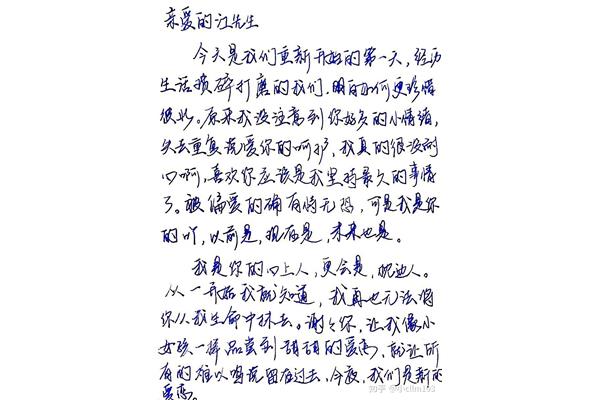 亲爱的江先生
今天是我们重新开始的第一天,经历
生活琐碎打磨的我们,明白如何更珍惜
彼此。原来我没注意到你好多的小情绪,
失去重复说爱你的呵护,我真的很没耐
心啊,喜欢你应该是我坚持最久的事情
了。被偏爱的确有恃无恐,可是我是你
的吖,以前是,现在是,未来也是。
我是你的心上人,更会是,枕边人。
从一开始我就知道,我再也无法将
你从我生命中抹去。谢谢你,让我像小
女孩一样品尝到甜甜的爱恋,就让所
有的难以啼说留在过去,今夜,我们是新的
爱恋。
知乎